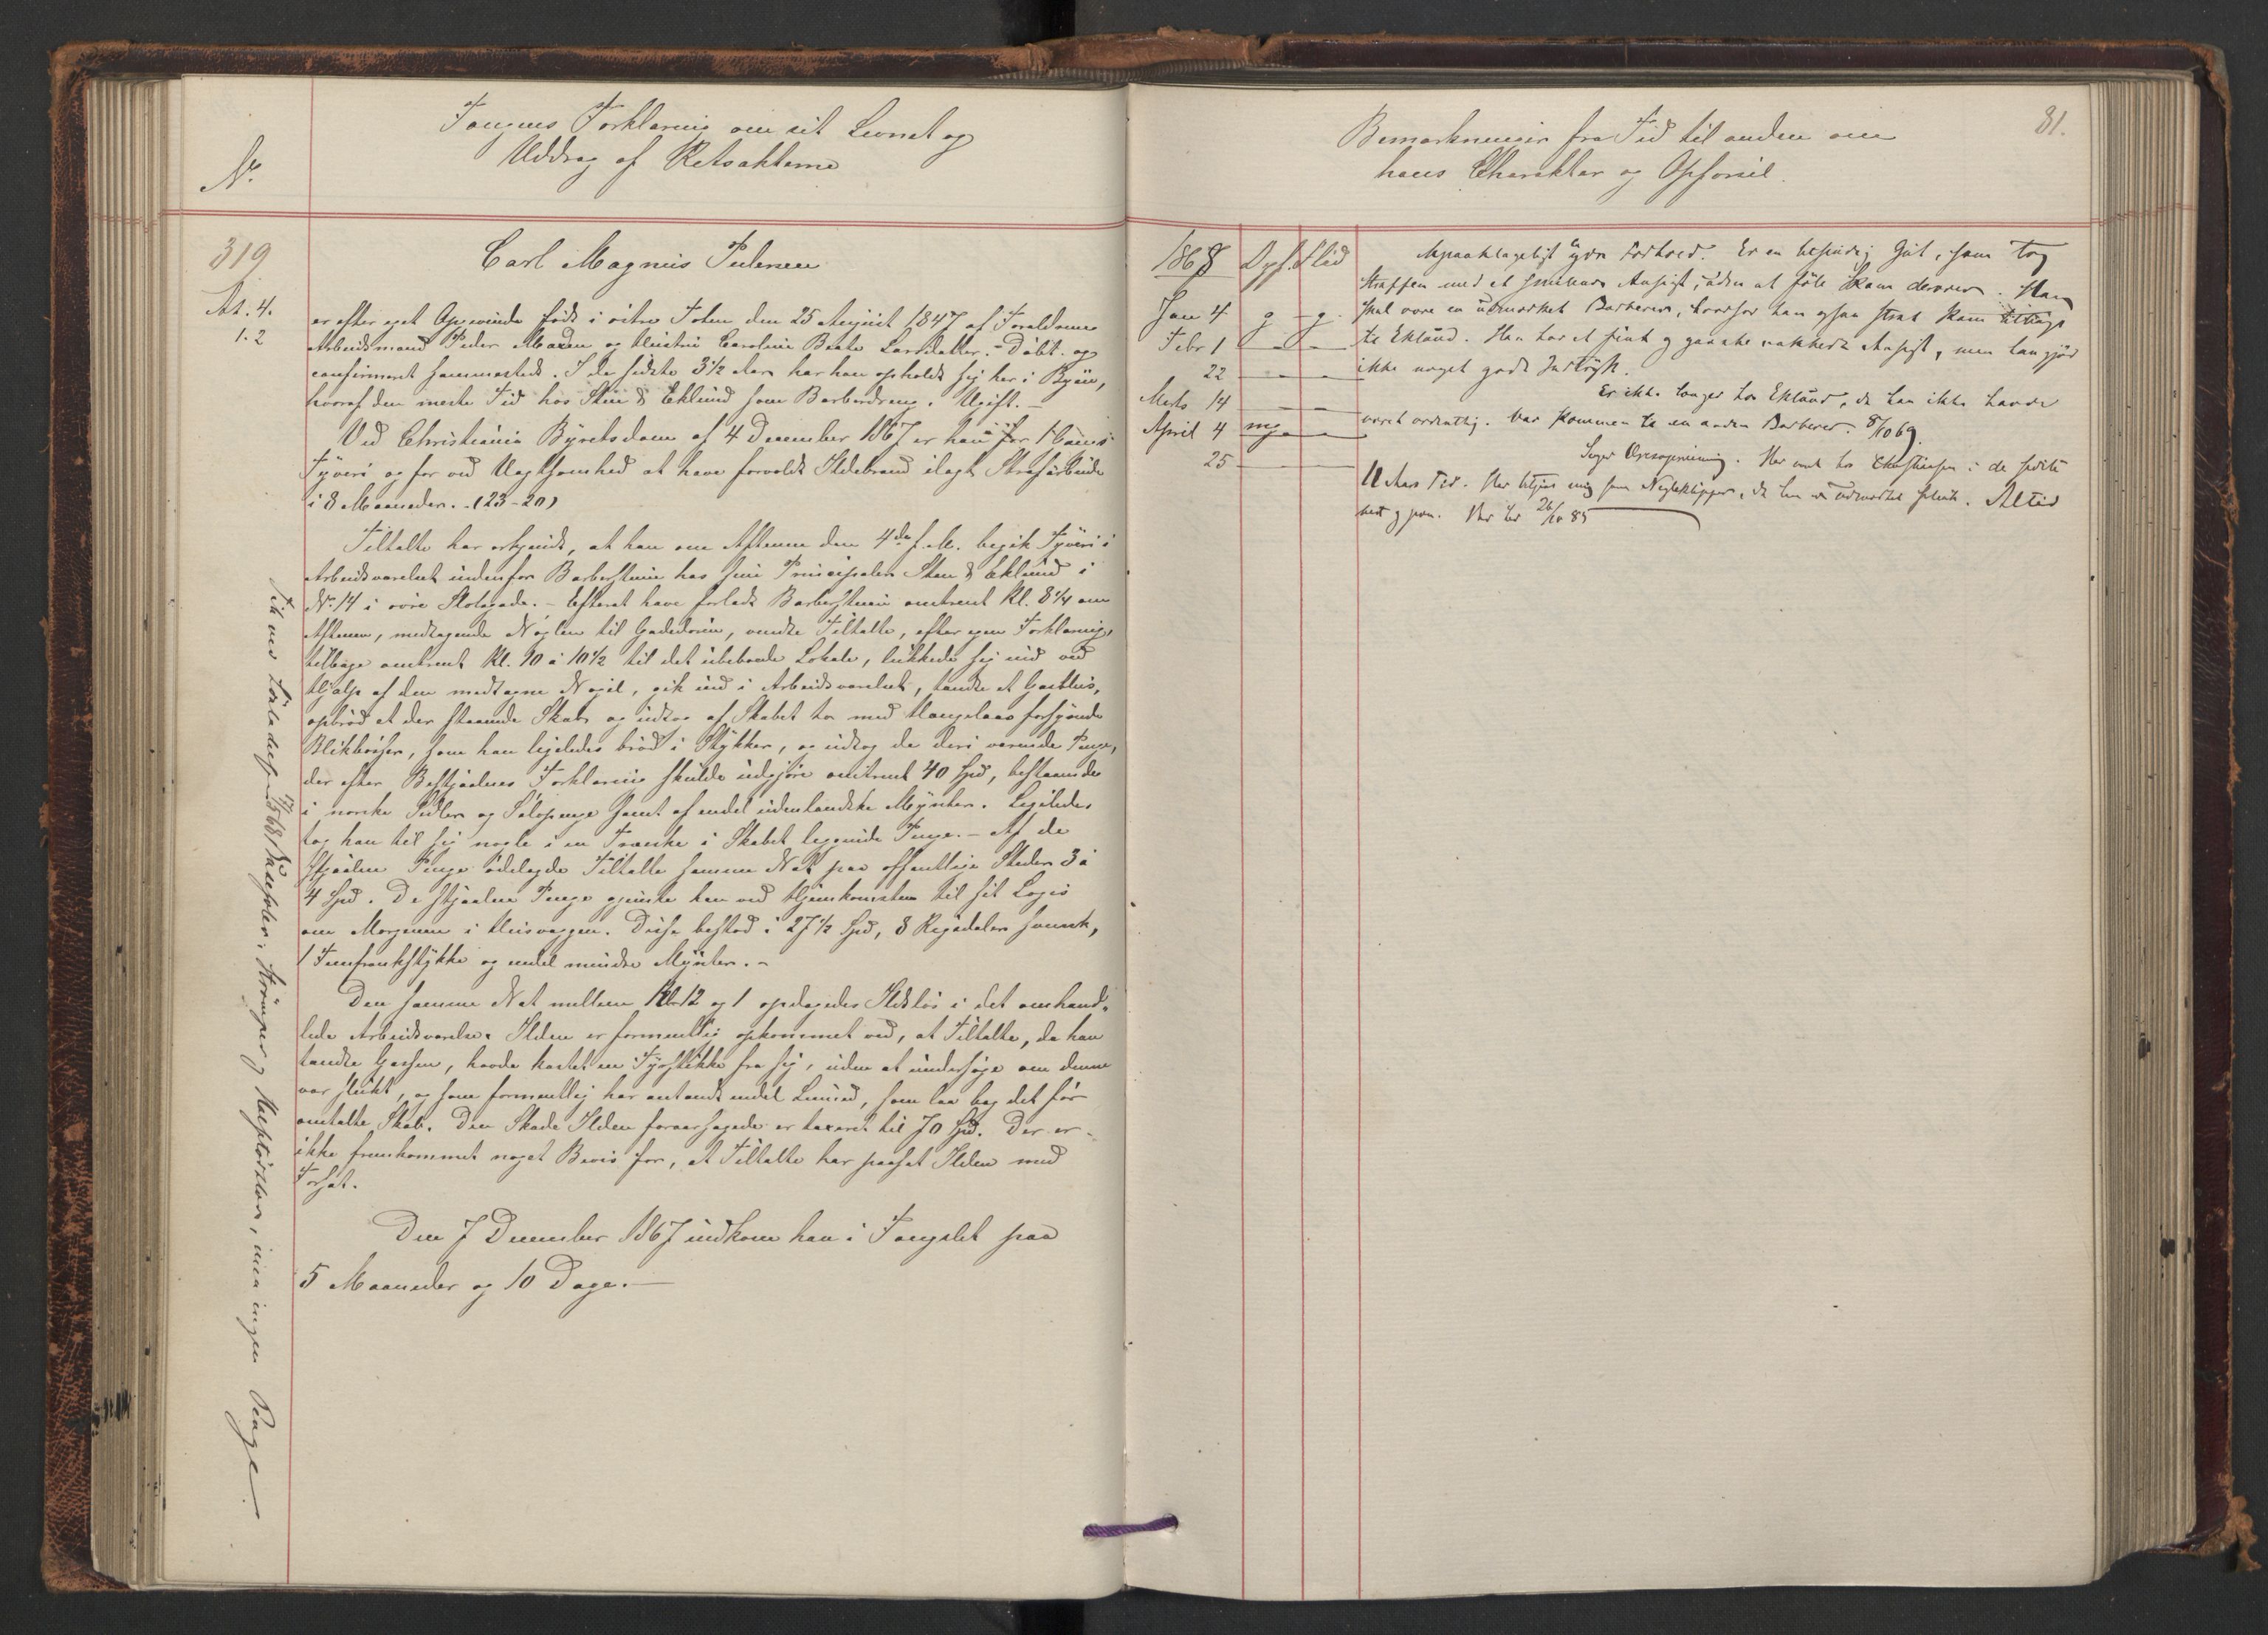 No
Fangens Forklaring om sit Levnet og
Uddrag af Retsakterne
319
At. 4.
1. 2
Carl Magnus Pedersen
er efter eget Opgivende født i østre Toten den 25 August 1847 af Forældrene
Arbeidsmand Peder Madsen og Hustru Caroline Beate Larsdatter. Døbt og
confirmeret sammesteds. I de sidste 3½ Aar har han opholdt sig her i Byen,
hvoraf den meste Tid hos Sten & Eklund som Barberdreng. Ugift. –
Ved Christiania Byretsdom af 4 December 1867 er han for 1 Gangs
Tyveri og for ved Uagtsomhed at have forvoldt Ildebrand ilagt Strafarbeide
i 8 Maaneder. – (23-20)
Tiltalte har erkjendt, at han om Aftenen den 4de f. M. begik Tyveri i
Arbeidsværelset indenfor Barberstuen hos sine Principaler Sten & Eklund i
No 14 i øvre Slotsgade. – Efterat have forladt Barberstuen omtrent Kl. 8¼ om
Aftenen, medtagende Nøglen til Gadedøren, vendte Tiltalte, efter egen Forklaring,
tilbage omtrent Kl. 10 à 10½ til det ubeboede Lokale, lukkede sig ind ved
Hjælp af den medtagne Nøgel, gik ind i Arbeidsværelset, tændte et Gasblus,
opbrød et der staaende Skab og udtog af Skabet to med Hængelaas forsynede
Blikbøsser, som han ligeledes brød i Stykker, og udtog de deri værende Penge,
der efter Bestjaalnes Forklaring skulde udgjøre omtrent 40 Spd, bestaaende
i norske Sedler og Sølvpenge samt af endel udenlandske Mynter. Ligeledes
tog han til sig nogle i en Træeske i Skabet liggende Penge. – Af de
stjaalne Penge ødelagde Tiltalte samme Nat paa offentlige Steder 3 à
4 Spd. De stjaalne Penge gjemte han ved Hjemkomsten til sit Logis
om Morgenen i Husvæggen. Disse bestod i 27½ Spd, 8 Rigsdaler svensk,
1 Femfrankstykke og endel mindre Mynter. –
Den samme Nat mellem Kl. 12 og 1 opdagedes Ildsløs i det omhand-
lede Arbeidsværelse. Ilden er formentlig opkommet ved, at Tiltalte, da han
tændte Gassen, havde kastet en Fyrstikke fra sig, uden at undersøge om denne
var slukt, og som formentlig har antændt endel Linned, som laa bag det før
omtalte Skab. Den Skade Ilden foraarsagede er taxeret til 70 Spd. Der er
ikke fremkommet noget Bevis for, at Tiltalte har paasat Ilden med
Forsæt.
Den 7 December 1867 indkom han i Fængslet paa
5 Maaneder og 10 Dage. –
Fik ved Løsladelsen 17/5 68 Strømper og Halstørklæde, men ingen Penge.
Bemærkninger fra Tid til anden om
hans Charakter og Opførsel.
81.
1868 Opf. Flid
Jan 4 g g.
Febr 1 – –
22 – –
Marts 14 – –
April 4 mg. –
25 – –
Upaaklageligt ydre Forhold. Er en besindig Gut, som tog
Straffen med et smilende Ansigt, uden at føle Skam derover. Han
skal være en udmærket Barberer, hvorfor han ogsaa strax kom tilbage
til Eklund. Han har et fint og ganske vakkert Ansigt, men han gjør
ikke noget godt Indtryk.
Er ikke længer hos Eklund, da han ikke havde
været ordentlig. Var kommen til en anden Barberer. 8/10 69.
Søger Oreisning. Har været hos Christensen i de sidste
11 Aars Tid. Har betjent mig som Negleklipper, da han er udmærket flink. Altid
net og pen. Var her 26/10 85